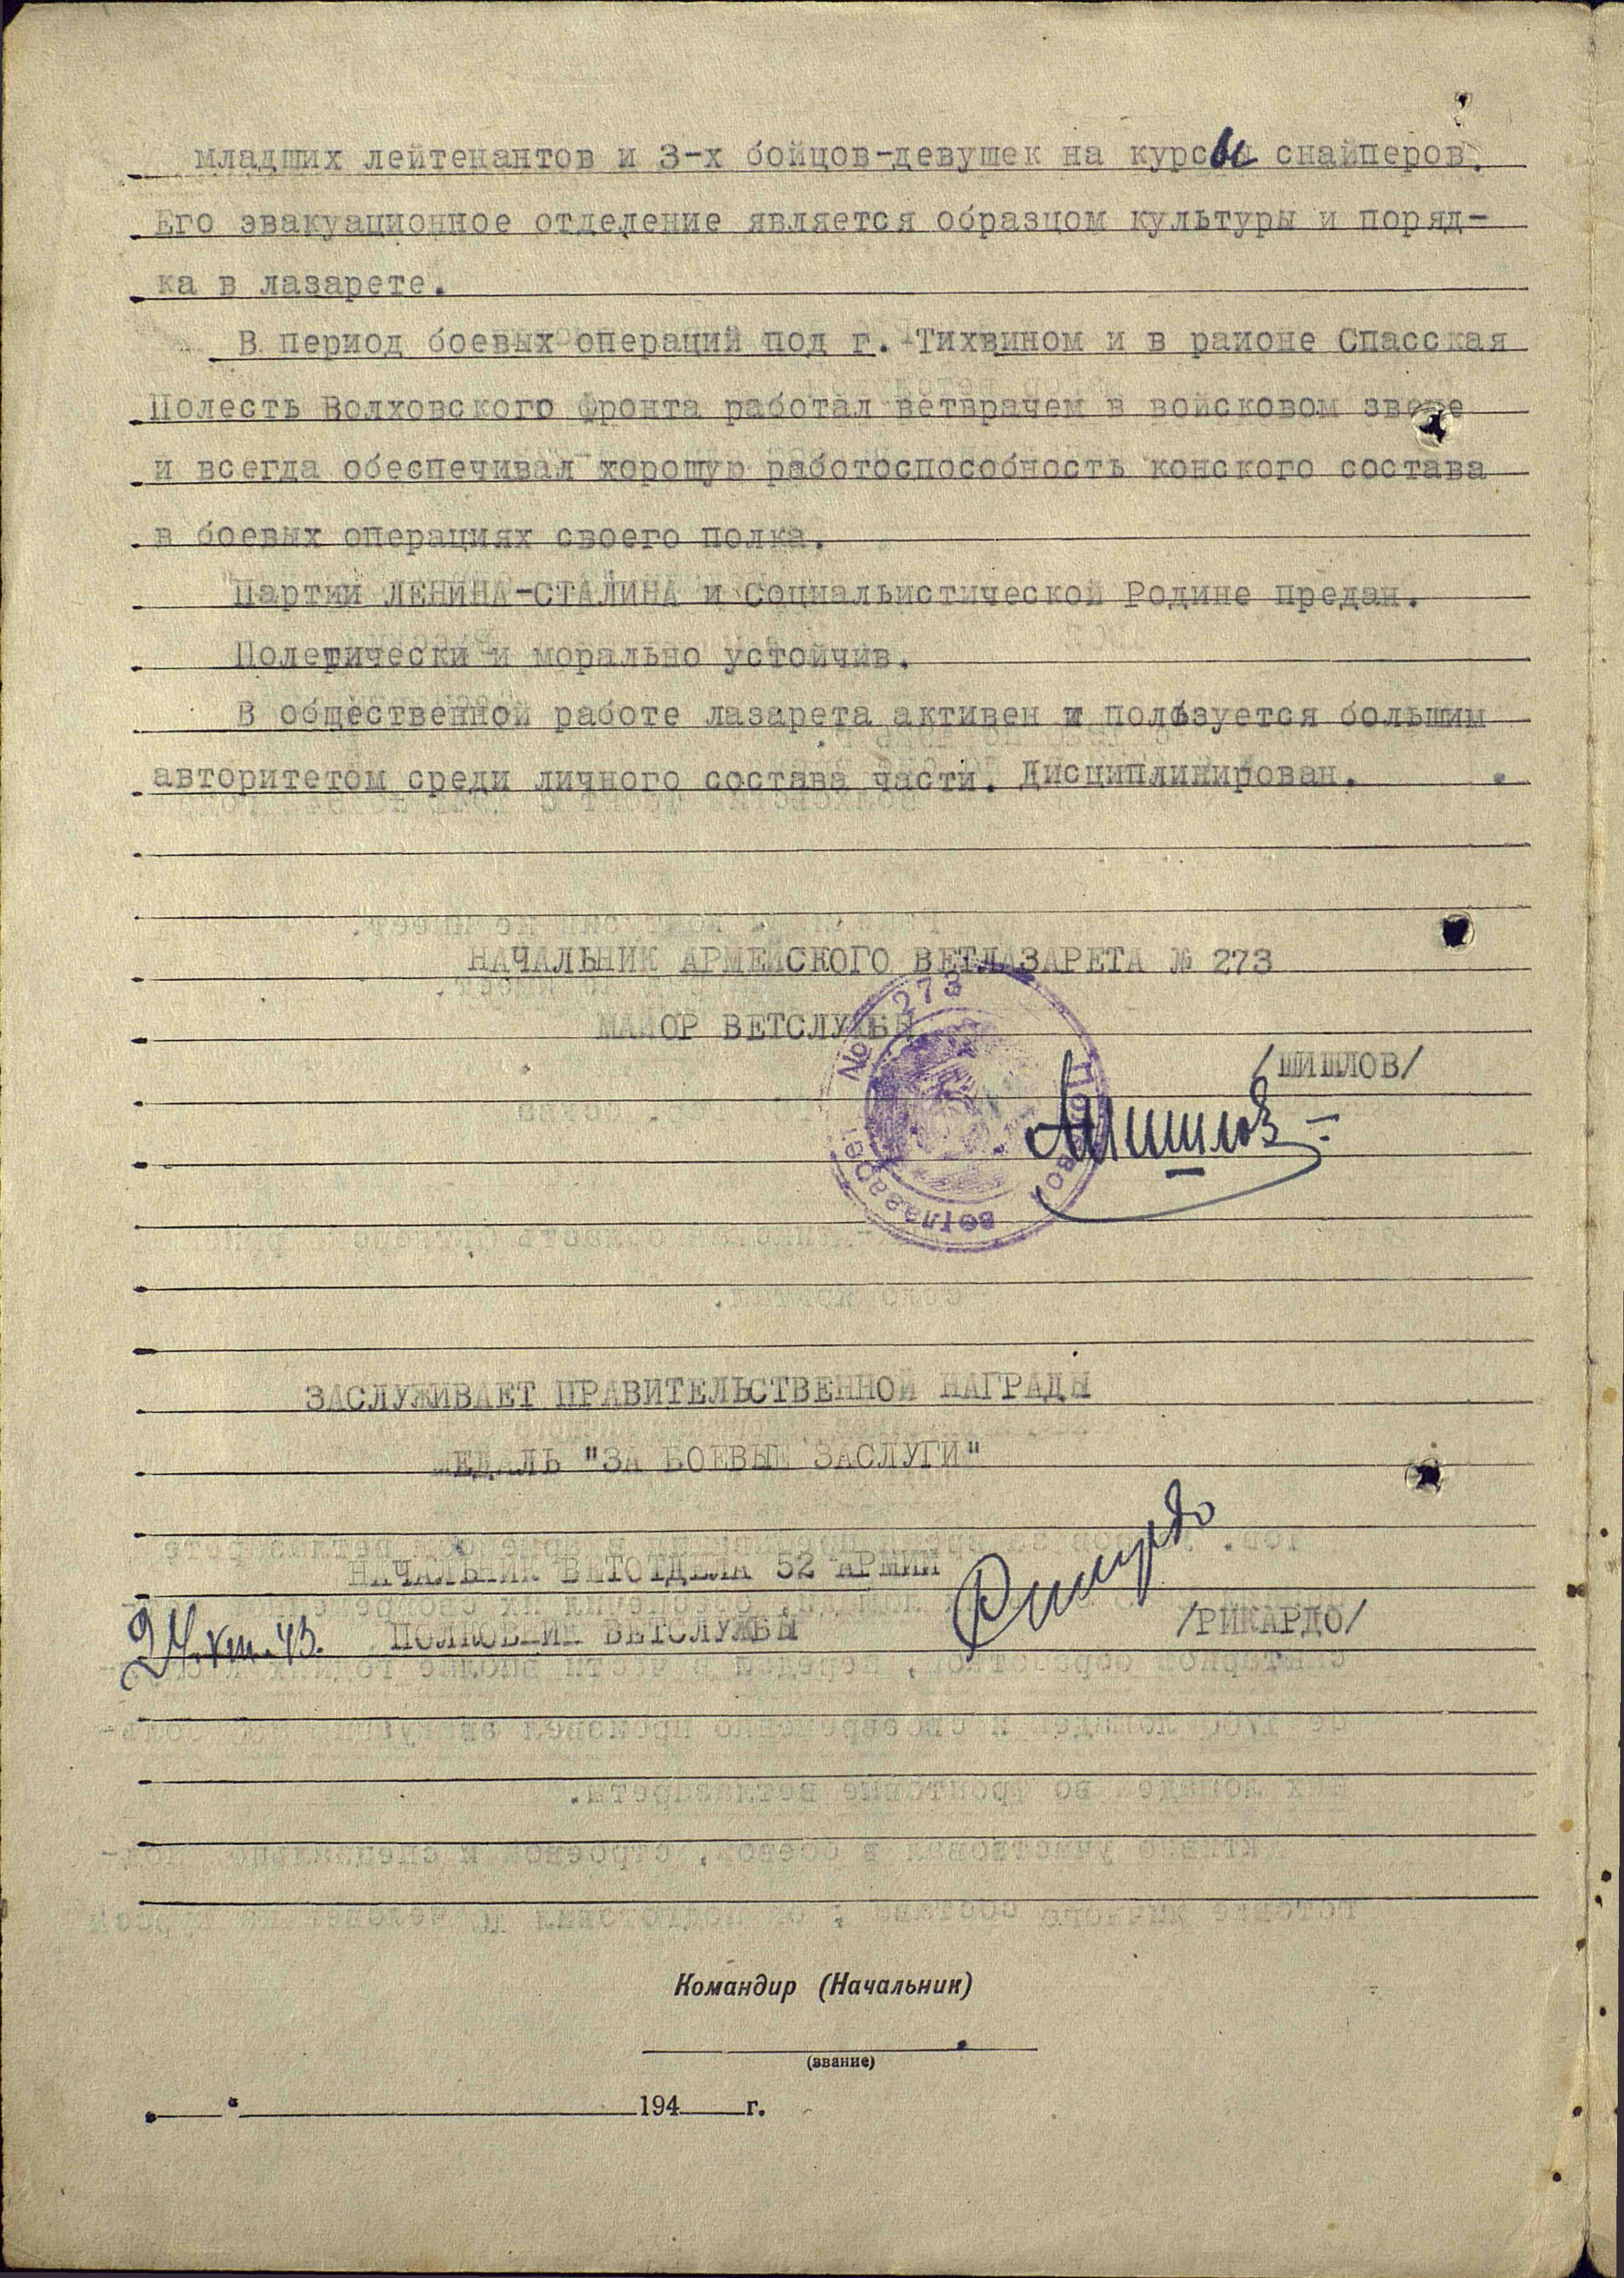 младших лейтенантов и 3-х бойцов-девушек на курсы снайперов.
Его эвакуационное отделение является образцом культуры и поряд-
ка в лазарете.
В период боевых операций под г. Тихвином и в районе Спасская
Полесть Волховского фронта работал ветврачем в войсковом звене
и всегда обеспечивал хорошую работоспособность конского состава
в боевых операциях своего полка.
Партии ЛЕНИНА-СТАЛИНА и Социальистической Родине предан.
Полетически и морально устойчив.
В общественной работе лазарета активен и пользуется большим
авторитетом среди личного состава части. Дисциплинирован.
НАЧАЛЬНИК АРМЕЙСКОГО ВЕТЛАЗАРЕТА № 273
МАЙОР ВЕТСЛУЖБЫ
No 273
ветлазарет
/ШИШЛОВ/
Шишлов
ЗАСЛУЖИВАЕТ ПРАВИТЕЛЬСТВЕННОЙ НАГРАДЫ
МЕДАЛЬ "ЗА БОЕВЫЕ ЗАСЛУГИ"
НАЧАЛЬНИК ВЕТОТДЕЛА 52 АРМИИ
24.XIII.43. ПОЛКОВНИК ВЕТСЛУЖБЫ Рикардо /РИКАРДО/
Командир (Начальник)
(звание)
„ “ 194 г.